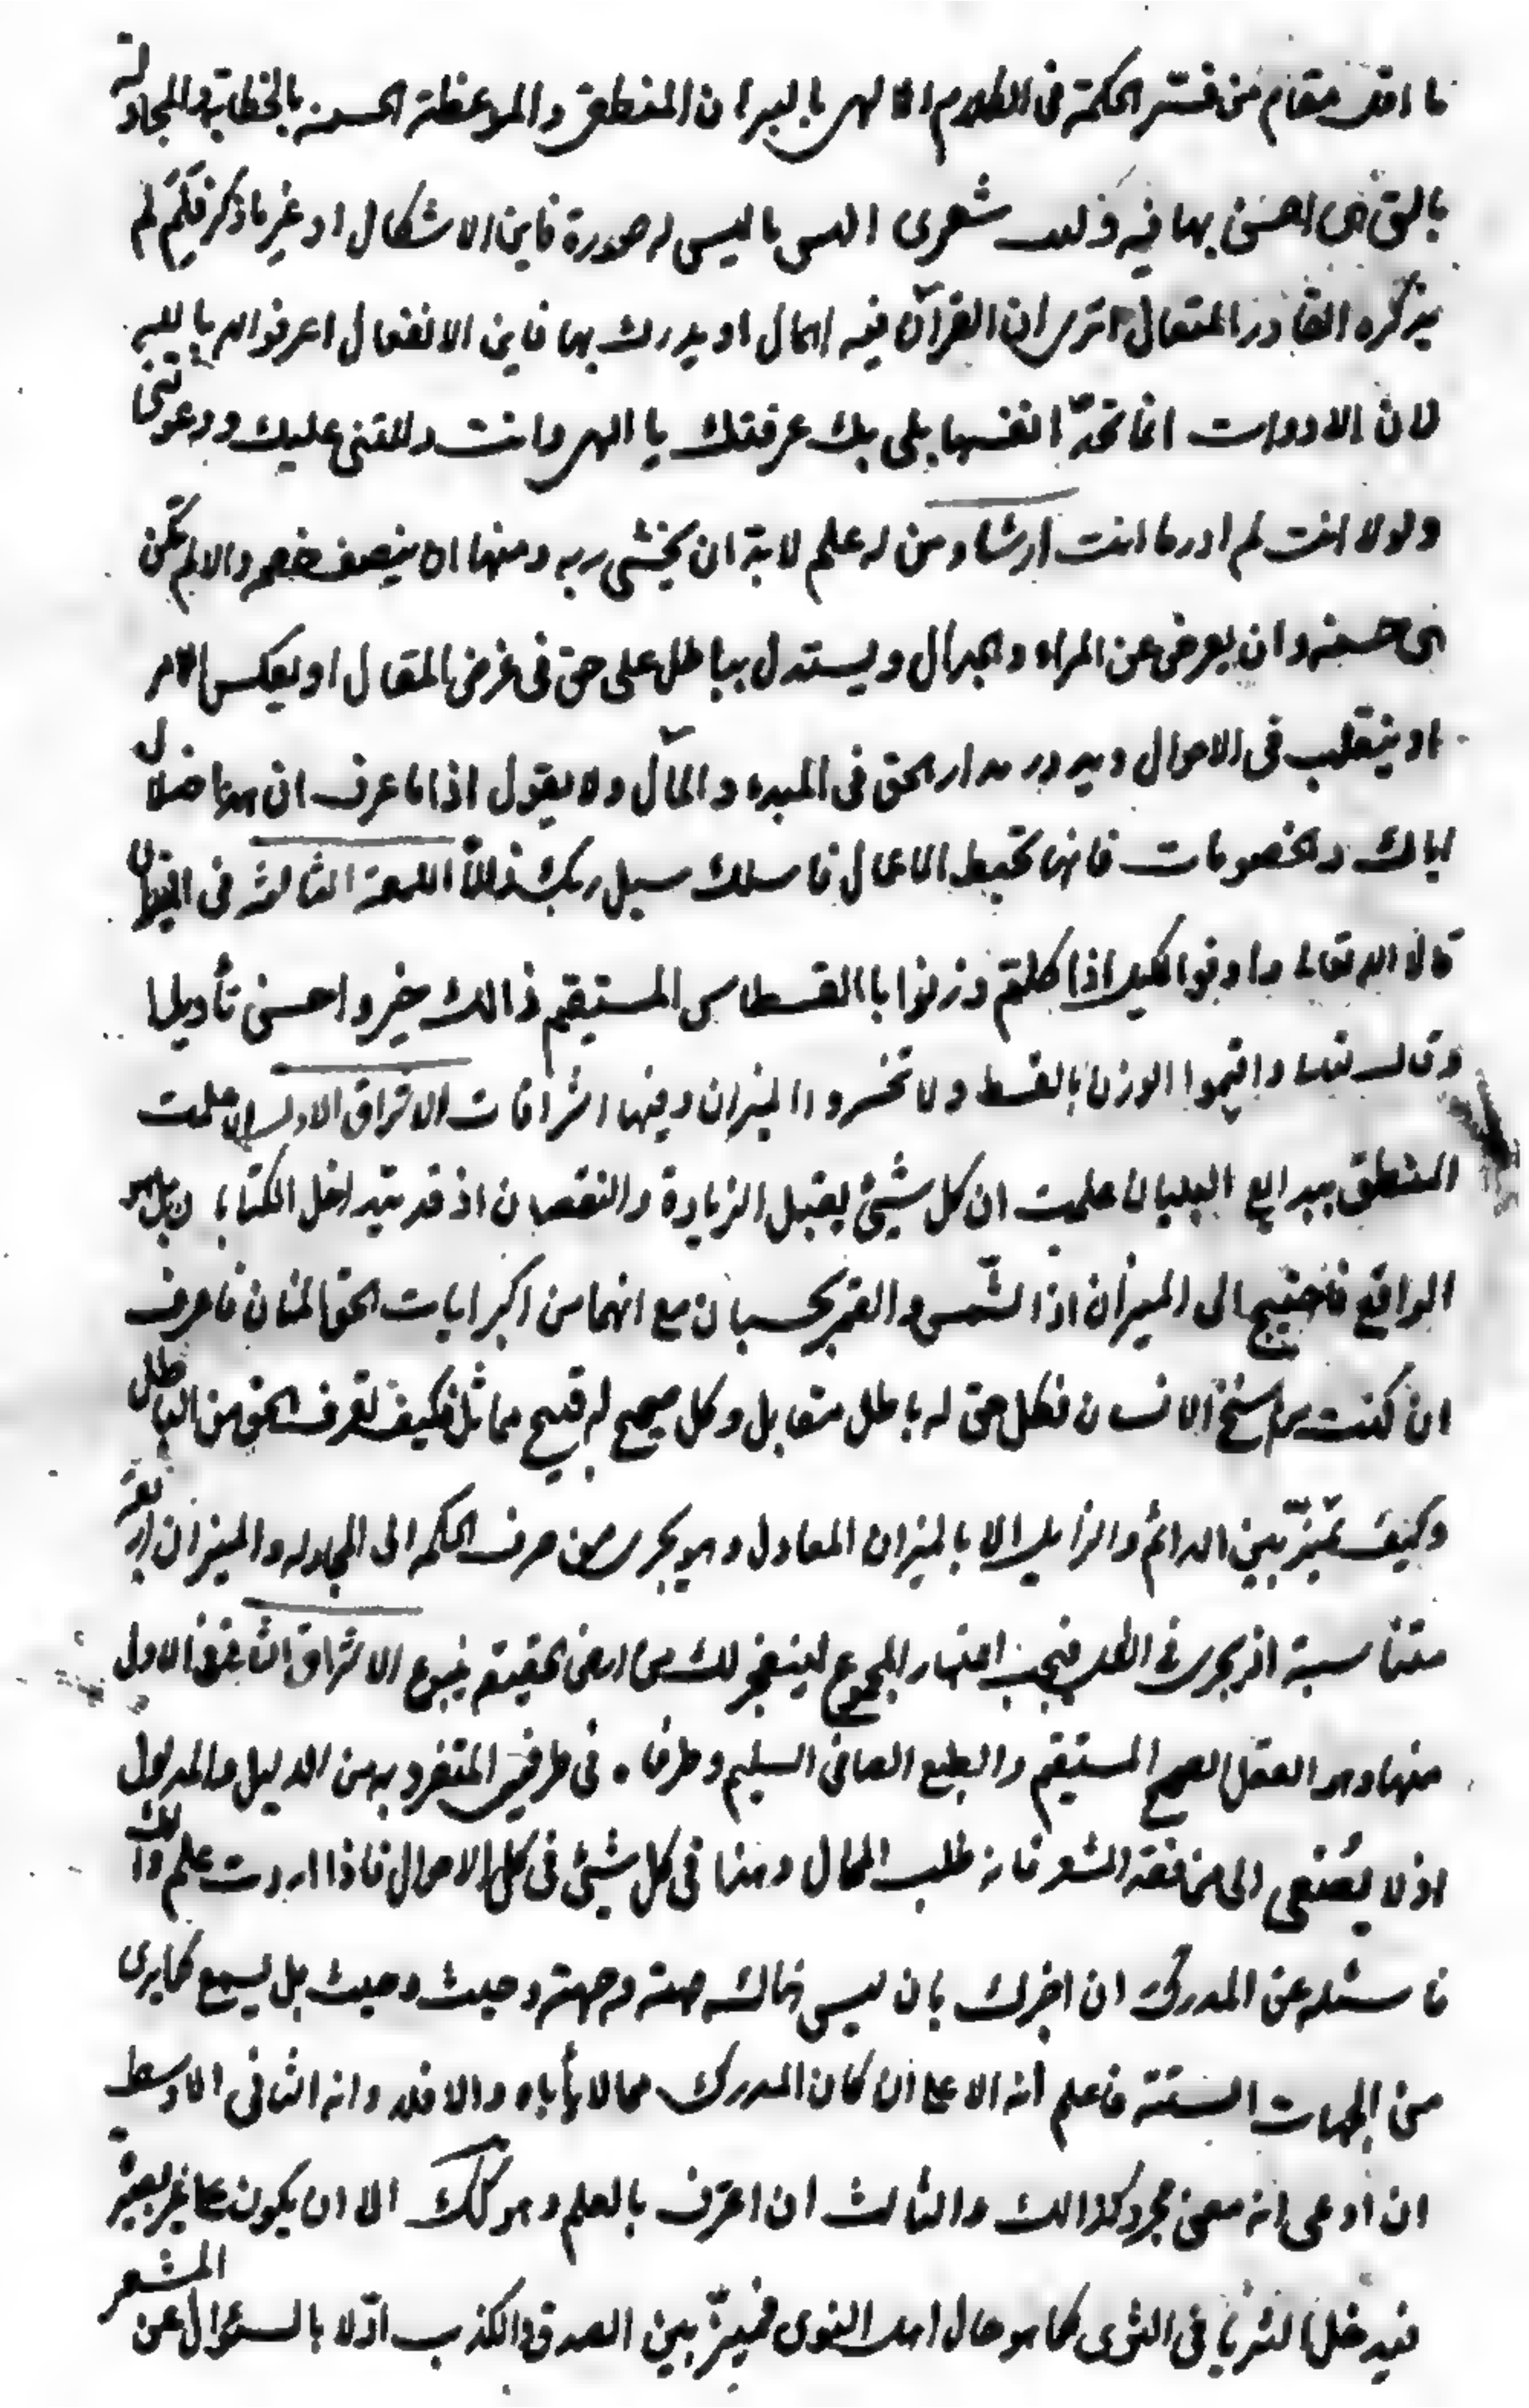 ما اقف مقام من فسّر الحكمة فى الكلام الالهى بالبرهان المنطقى والموعظة الحسنه بالخطابة والمجادلة
بالتى هى احسن بها فيه وليت شعرى اليس ما ليس له صورة فاين الاشكال او غير ما ذكر فكم لم
يذكره القادر المتعال اترى ان القرآن فيه اهمال او يدرك بها فاين الانفعال اعرفوا الله بالله
لان الادوات انما تحدّ انفسها بلى بك عرفتك يا الهى وانت دللتنى عليك ودعوتنى
ولولا انت لم ادر ما انت ارشاد ومن له علم لابد ان يخشى ربه ومنها ان ينصف خصمه والا لم تكن
هى حسنه وان يعرض عن المراء والجدال ويستدل بباطل على حق فى غرض المقال او يعكس الامر
او ينقلب فى الاحوال ويدور مدار الحق فى المبدء والمآل ولا يقول اذا ما عرف ان هذا ضلال
اياك والخصومات فانها تحبط الاعمال فاسلك سبيل ربك ذللاً اللمعة الثالثه فى الميزان
قال الله تعالى واوفوا الكيل اذا كلتم وزنوا باالقسطاس المستيقم ذالك خير واحسن تأويلا
وقال تعالى واقيموا الوزن بالقسط ولا تخسروا الميزان وفيها اشراقات الاشراق الاول ان علمت
المنطق ببدايع البيان علمت ان كل شيئ يقبل الزيادة والنقصان اذ قد يتداخل الكتابان بل هو
الواقع فاحتيج الى الميزان اذ الشّمس والقمر بحسبان مع انهما من اكبر ايات الحق المنان فاعرف
ان كنت راسخ الانسان فكل حق له باطل متقابل وكل صحيح له قبيح مماثل فكيف تعرف الحق من الباطل
وكيف تميّز بين الدائم والزايل الا بالميزان المعادل وهو يجرى من صرف الحكمه الى المجادله والميزان اربعة
متناسبة اذ يجرى فى الكل فيجب اعتبار المجموع لينفجر لك من ارض الحقيقه ينبوع الاشراق الثانى فالاول
منها وهو العقل الصحيح المستيقم والطبع الصافى السليم وطرفاه فى طرفى المتفرد به من الدليل والمدلول
اذ لا يصغى الى من فقد الشعر فانه طلب المحال وهذا فى كل شيئ فى كل الاحوال فاذا اردت علم ذلك
فاسئله عن المدرك ان اخبرك بان ليس هناك جهة وجهة وحيث وحيث بل يسمع كما يرى
من الجهات الستة فاعلم انه الاعلى ان كان المدرك مما لا يأباه والا فلا وانه الثانى الاوسط
ان ادعى انه معنى مجرد كذالك والثالث ان اعترف بالعلم وهو كك الا ان يكون على غير بصيرة
فيدخل الثريا فى الثرى كما هو حال اهل النوى فميّز بين الصدق والكذب اوّلا بالسئوال عن المشعر